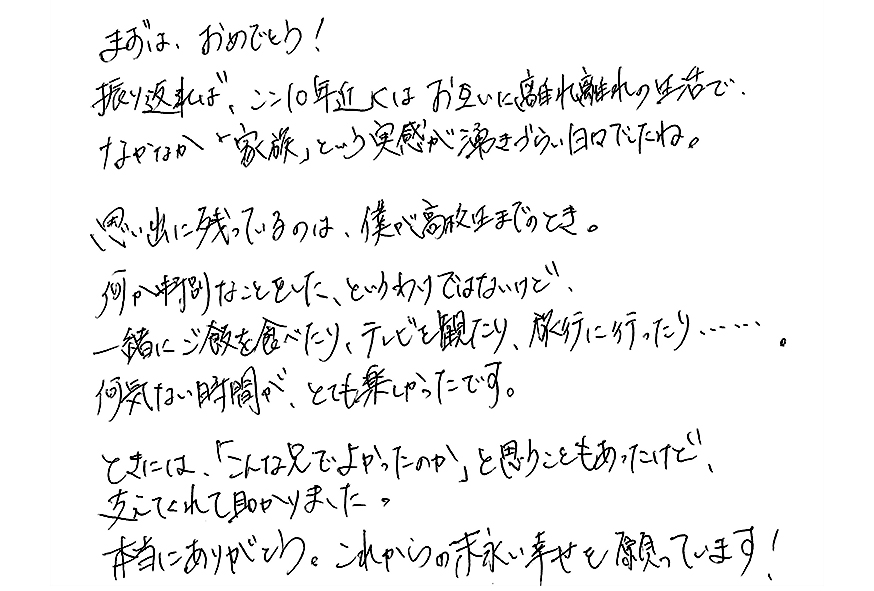 まずは、おめでとう!
振り返れば、ここ10年近くはお互いに離れ離れの生活で、
なかなか「家族」という実感が湧きづらい日々でしたね。
思い出に残っているのは、僕が高校生までのとき。
何か特別なことをした、というわけではないけど、
一緒にご飯を食べたり、テレビを観たり、旅行に行ったり……。
何気ない時間が、とても楽しかったです。
ときには、「こんな兄でよかったのか」と思うこともあったけど、
支えてくれて助かりました。
本当にありがとう。これからの末永い幸せを願っています!